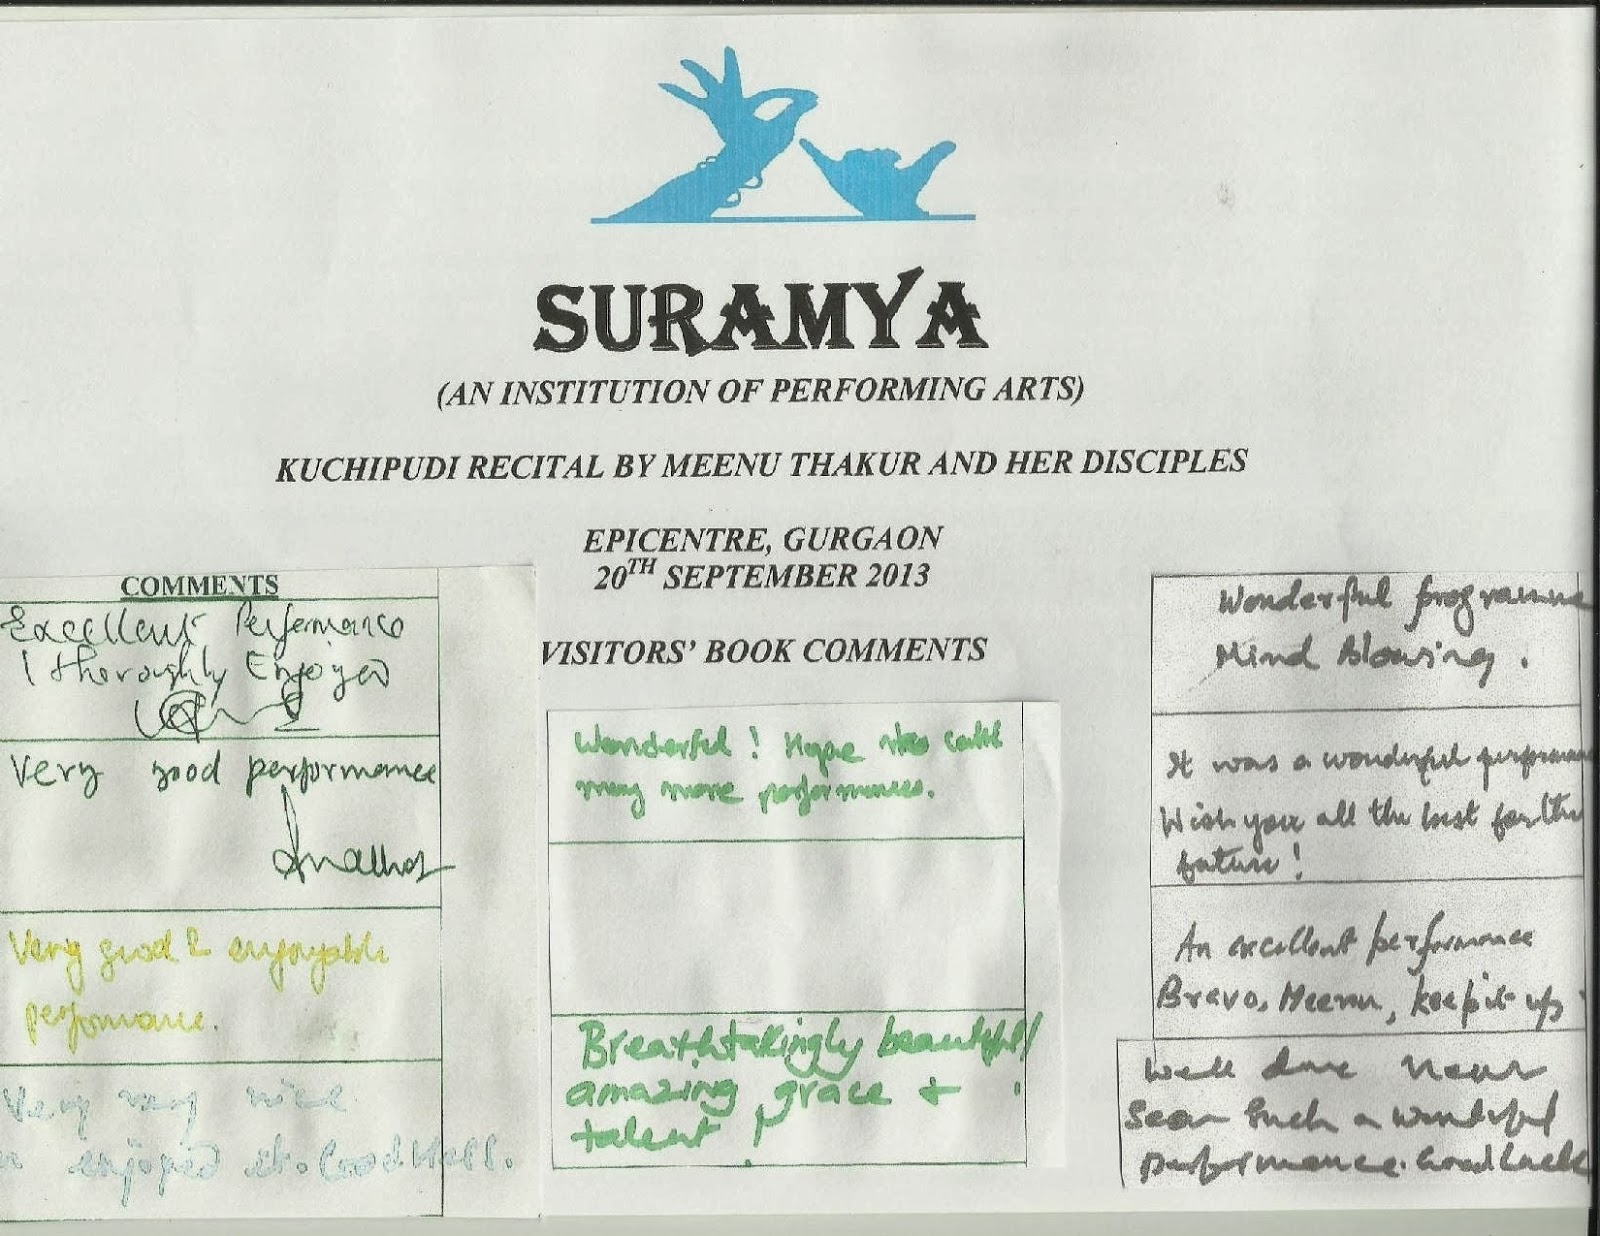 SURAMYA
(AN INSTITUTION OF PERFORMING ARTS)
KUCHIPUDI RECITAL BY MEENU THAKUR AND HER DISCIPLES
EPICENTRE, GURGAON
20TH SEPTEMBER 2013
VISITORS' BOOK COMMENTS
COMMENTS
Excellent Performance
I thoroughly Enjoyed
Very good performance
Very good & enjoyable
performance.
Very very nice
enjoyed it. Good
Wonderful! Hope
many more performances.
Breathtakingly beautiful!
amazing grace +
talent!
Wonderful programme
Mind Blowing.
It was a wonderful performance
Wish you all the best for the
future!
An excellent performance
Bravo, Meenu, keep it up
Well done never
seen such a wonderful
performance. Good luck